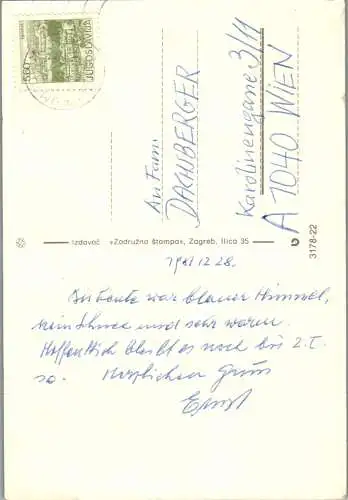 5.60
JUGOSLAVIJA
An Fam.
DACHSBERGER
Karolinengasse 3/11
A 1040 WIEN
Izdavač «Zadružna štampa», Zagreb, Ilica 35
3178-22
1981 12 28.
heute war blauer Himmel,
kein Schnee und sehr warm.
Hoffentlich bleibt es noch bis 2.I.
so. Herzlichen Gruss
Ernst